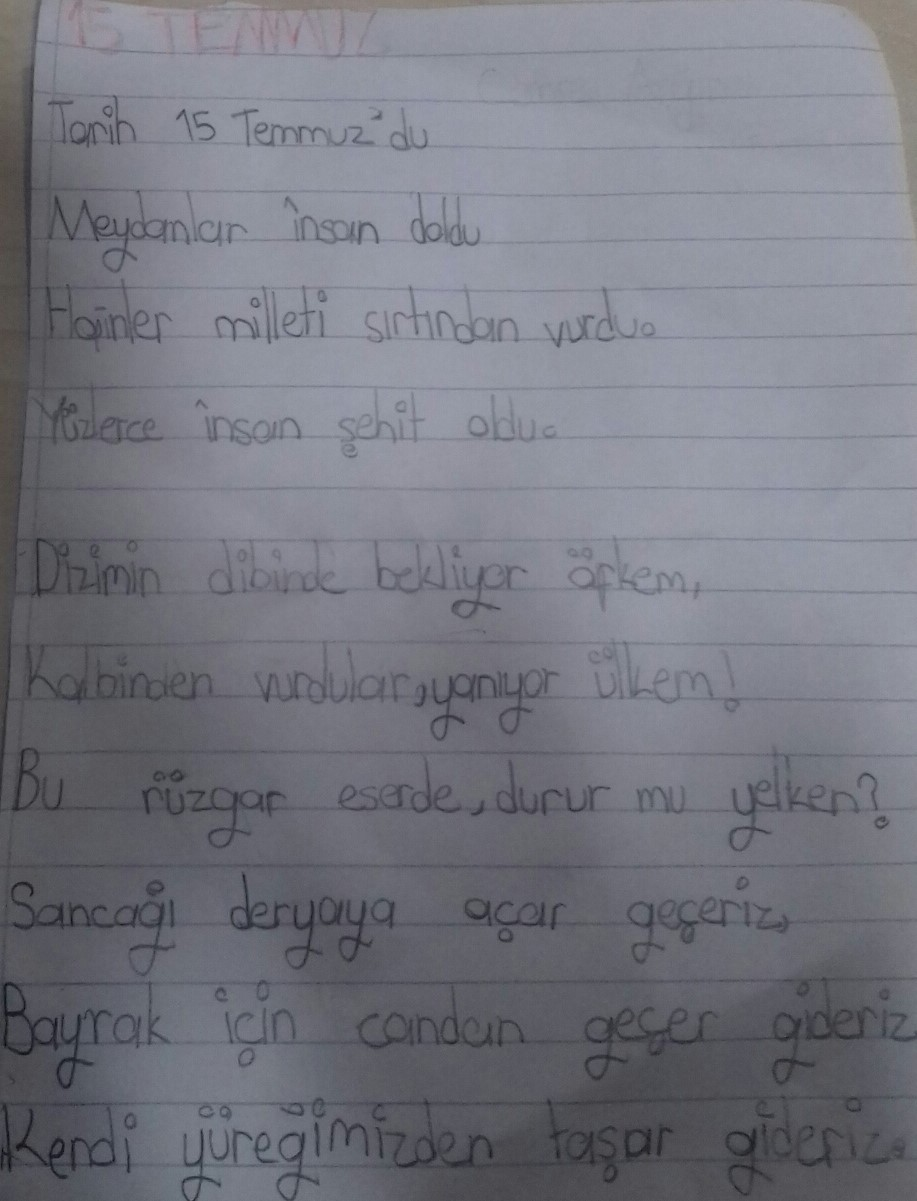 15 TEMMUZ
Tarih 15 Temmuz'du
Meydanlar insan doldu
Hainler milleti sırtından vurdu.
Yüzlerce insan şehit oldu.
Dizimin dibinde bekliyor öfkem,
Kalbinden vurdular, yanıyor ülkem!
Bu rüzgar eserde, durur mu yelken?
Sancağı deryaya açar geçeriz,
Bayrak için candan geçer gideriz
Kendi yüreğimizden taşar gideriz.